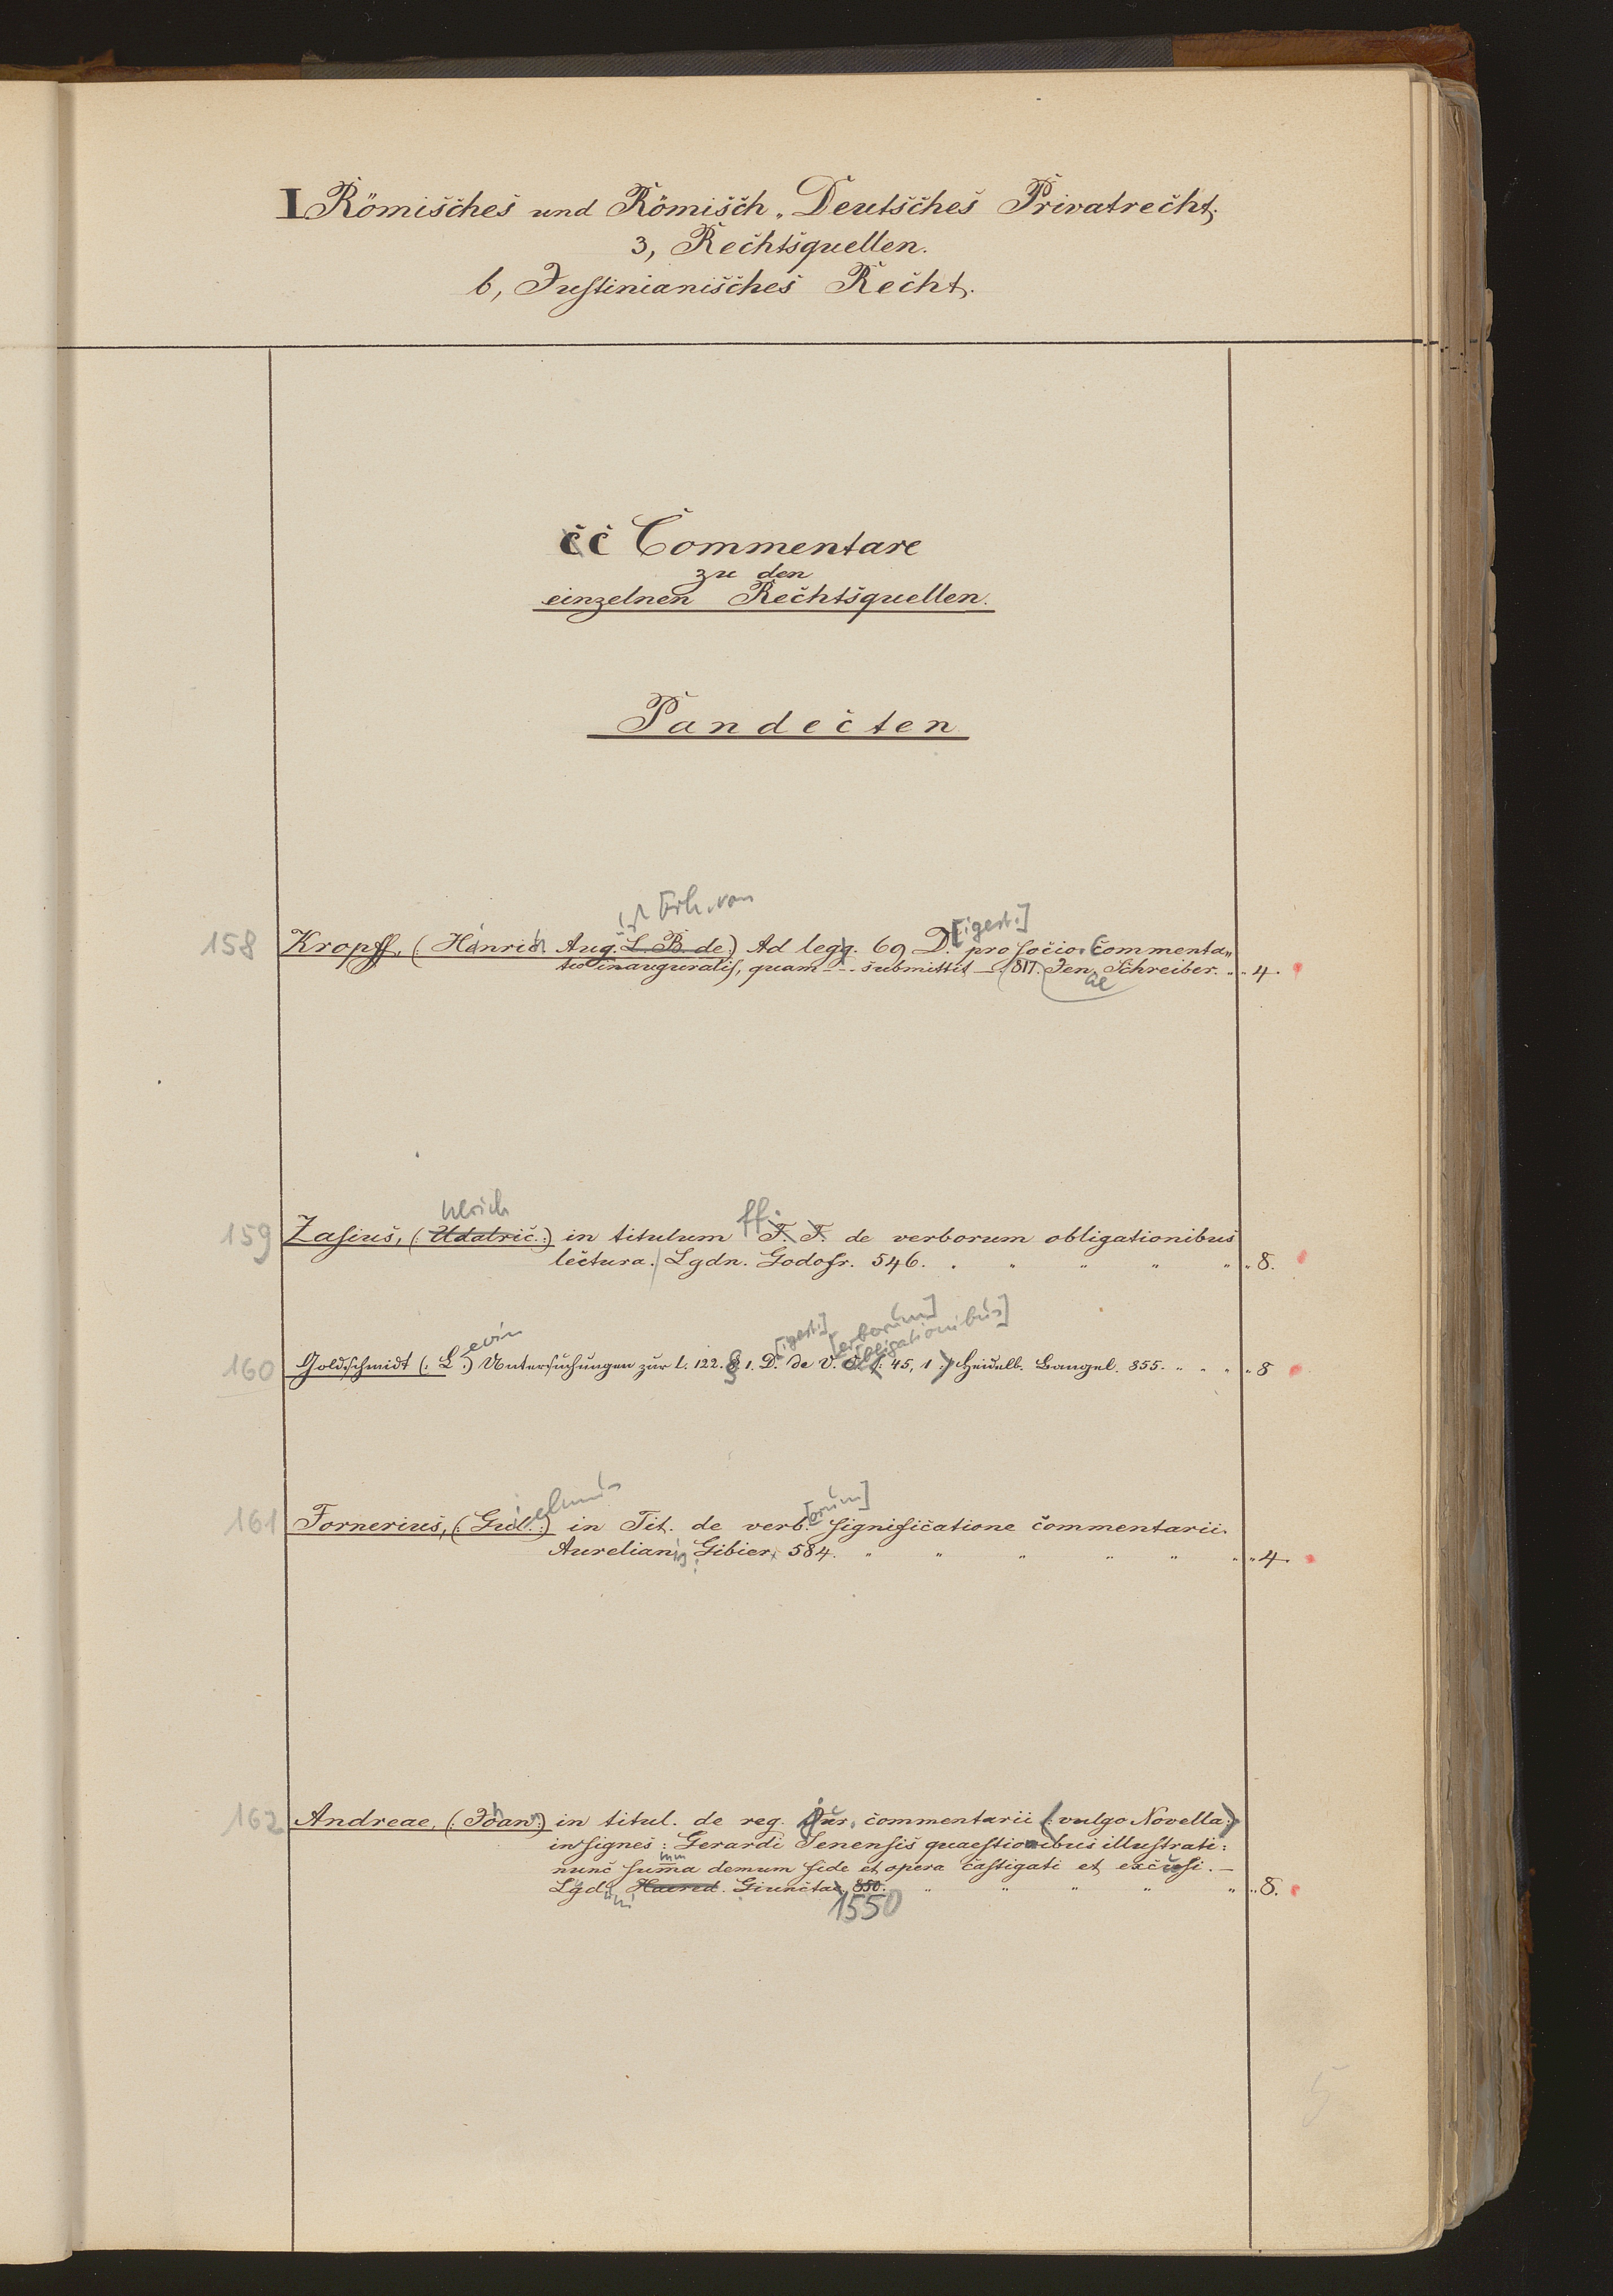 I Römisches und Römisch „ Deutsches Privatrecht.
3, Rechtsquellen.
b, Justinianisches Recht.
cc Commentare
zu den
einzelnen Rechtsquellen.
Pandecten
Frh. von
[igest.]
158 Kropff, (: Henrich Aug. L. B. de:) Ad legg. 69 D. pro socio. Commenta„
tio inauguralis, quam - - submittit - 817. Jenae Schreiber. „ „ 4.
Ulrich ff.
159 Zasius, (: Udalric.:) in titulum F. F. de verborum obligationibus
lectura. Lgdn. Godofr. 546. „ „ „ „ „ 8.
[igest.] [erborum] [bligationibus]
160 Goldschmidt (: L.:) evin Untersuchungen zur l. 122. § 1. D. de V. O. (: 45, 1:) Heidelb. Bangel. 855. „ „ „ „ 8
ielmus [orum]
161 Fornerius, (: Guil.:) in Tit. de verb. significatione commentarii.
Aurelianis, Gibier, 584. „ „ „ „ „ „ „ 4.
162 Andreae, (: Johann:) in titul. de reg. Jur. commentarii (: vulgo Novella:)
insignes: Gerardi Senensis quaestionibus illustrati:
nunc summa demum fide et opera castigati et excusi. –
Lgd. Haered. Giunctae, 850. „ „ „ „ „ „ 8.
1550